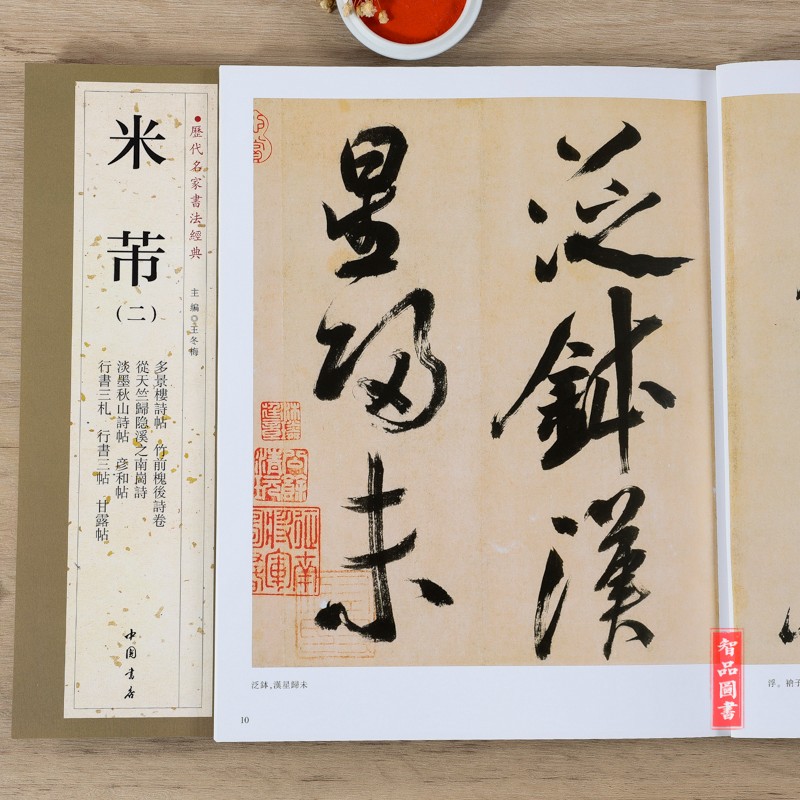 米芾
（二）
歷代名家書法經典
主編◎王冬梅
多景樓詩帖 竹前槐後詩卷
從天竺歸隐溪之南崗詩
淡墨秋山詩帖 彦和帖
行書三札 行書三帖 甘露帖
中国书店
泛鉢漢
星歸未
泛鉢，漢星歸未
10
浮。
智品圖書